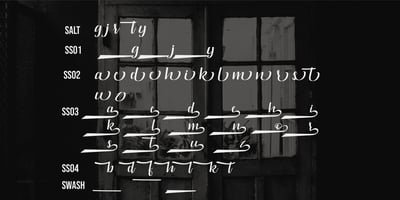 SALT g j r t y
SS01 g j y
SS02 a c d e h i k l m n r s t
u o
SS03 a c d e h i
k l m n o r
s t u z
SS04 b d f h l k t
SWASH